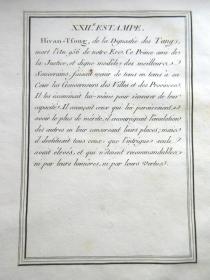 XXII.e ESTAMPE.
Hivan-Tsong, de la Dynastie des Tangs,
mort l'An 956 de notre Ere. Ce Prince ami de
la Justice, et digne modèle des meilleurs
Souverains, faisait venir de tems en tems à sa
Cour les Gouverneurs des Villes et des Provinces.
Il les examinait lui-même pour s'assurer de leur
capacité. Il avançait ceux qui lui paraissaient
avoir le plus de mérite, il encourageait l'émulation
des autres en leur conservant leurs places; mais
il destituait tous ceux que l'intrigue seule
avait élevés, et qui n'étaient recommandables
ni par leurs lumières, ni par leurs Vertus.